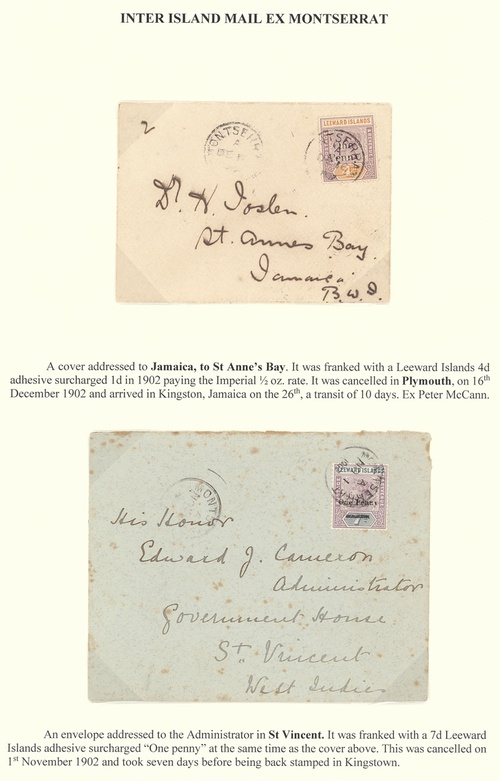 INTER ISLAND MAIL EX MONTSERRAT
2
MONTSERR
A
DE
LEEWARD ISLANDS
Dr. H. Joslen.
St. Annes Bay.
Jamaica
B.W.I.
A cover addressed to Jamaica, to St Anne's Bay. It was franked with a Leeward Islands 4d
adhesive surcharged 1d in 1902 paying the Imperial ½ oz. rate. It was cancelled in Plymouth, on 16th
December 1902 and arrived in Kingston, Jamaica on the 26th, a transit of 10 days. Ex Peter McCann.
MONT
LEEWARD ISLANDS
One Penny
His Honor
Edward J. Cameron
Administrator
Government House
St. Vincent
West Indies
An envelope addressed to the Administrator in St Vincent. It was franked with a 7d Leeward
Islands adhesive surcharged “One penny” at the same time as the cover above. This was cancelled on
1st November 1902 and took seven days before being back stamped in Kingstown.